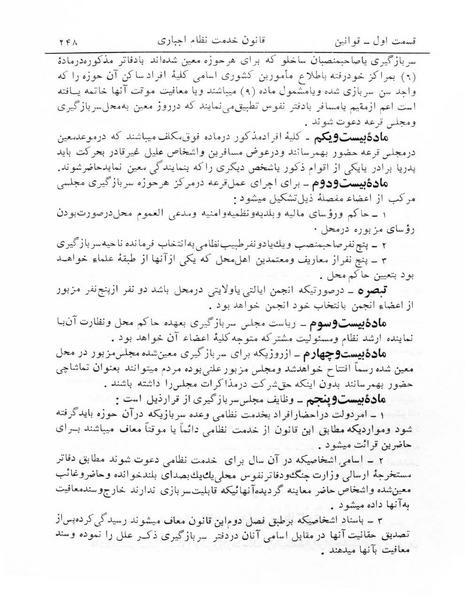 قسمت اول ـ قوانین
قانون خدمت نظام اجباری
۲۴۸
سربازگیری یاصاحبمنصبان ساخلو که برای هرحوزه معین شده‌اند بادفاتر مذکوره درمادهٔ
(۶) بمراکز خودرفته باطلاع مأمورین کشوری اسامی کلیهٔ افراد ساکن آن حوزه را که
واجد سن سربازی شده ویامشمول ماده (۹) میباشند ویا معافیت موقت آنها خاتمه یافته
است اعم ازمقیم یامسافر بادفتر نفوس تطبیق می‌نمایند که درروز معین به‌محل‌سربازگیری
ومجلس قرعه دعوت شوند.
مادهٔ بیست و یکم ـ کلیهٔ افراد مذکور درماده فوق مکلف میباشند که درموعدمعین
درمجلس قرعه حضور بهمرسانند ودرعوض مسافرین واشخاص علیل غیرقادر بحرکت باید
پدریا برادر یایکی از اقوام ذکور یاشخص دیگری را که بنمایندگی معین نماید حاضرشوند.
مادهٔ بیست و دوم ـ برای اجرای عمل قرعه درمرکز هرحوزه سربازگیری مجلسی
مرکب از اعضاء مفصلهٔ ذیل تشکیل میشود:
۱ ـ حاکم ورؤسای مالیه وبلدیه ونظمیه وامنیه ومدعی العموم محل درصورت بودن
رؤسای مزبوره درمحل.
۲ ـ پنج نفر صاحبمنصب ویک یا دونفر طبیب نظامی به‌انتخاب فرمانده ناحیه سربازگیری
۳ ـ پنج نفر از معاریف ومعتمدین اهل محل که یکی ازآنها از طبقهٔ علماء خواهد
بود بتعیین حاکم محل.
تبصره ـ درصورتیکه انجمن ایالتی یاولایتی درمحل باشد دو نفر ازپنج نفر مزبور
از اعضاء انجمن بانتخاب خود انجمن خواهد بود.
مادهٔ بیست و سوم ـ ریاست مجلس سربازگیری بعهده حاکم محل ونظارت آن با
نماینده ارشد نظام ومسئولیت مشترکه متوجه کلیهٔ اعضاء آن خواهد بود.
مادهٔ بیست و چهارم ـ ازروزیکه برای سربازگیری معین شده مجلس مزبور در محل
معین شده رسماً افتتاح خواهدشد ومجلس مزبور علنی بوده مردم میتوانند بعنوان تماشاچی
حضور بهمرسانند بدون اینکه حق شرکت درمذاکرات مجلس را داشته باشند.
مادهٔ بیست و پنجم ـ وظایف مجلس سربازگیری از قرار ذیل است:
۱ ـ امردولت دراحضار افراد بخدمت نظامی وعده سربازیکه درآن حوزه باید گرفته
شود ومواردیکه مطابق این قانون از خدمت نظامی دائماً یا موقتاً معاف میباشند برای
حاضرین قرائت میشود.
۲ ـ اسامی اشخاصیکه در آن سال برای خدمت نظامی دعوت شوند مطابق دفاتر
مستخرجهٔ ارسالی وزارت جنگ ودفاتر نفوس محلی یک‌یک بصدای بلند خوانده وحاضر وغائب
معین شده واشخاص حاضر معاینه گردیده آنهائیکه قابلیت سربازی ندارند خارج وسند معافیت
به‌آنها داده میشود.
۳ ـ باسناد اشخاصیکه برطبق فصل دوم این قانون معاف میشوند رسیدگی کرده پس از
تصدیق حقانیت آنها در مقابل اسامی آنان دردفتر سربازگیری ذکر علل را نموده وسند
معافیت بآنها میدهند.